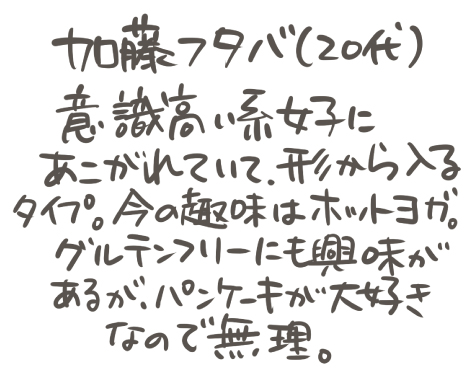 加藤フタバ(20代)
意識高い系女子に
あこがれていて、形から入る
タイプ。今の趣味はホットヨガ。
グルテンフリーにも興味が
あるが、パンケーキが大好き
なので無理。